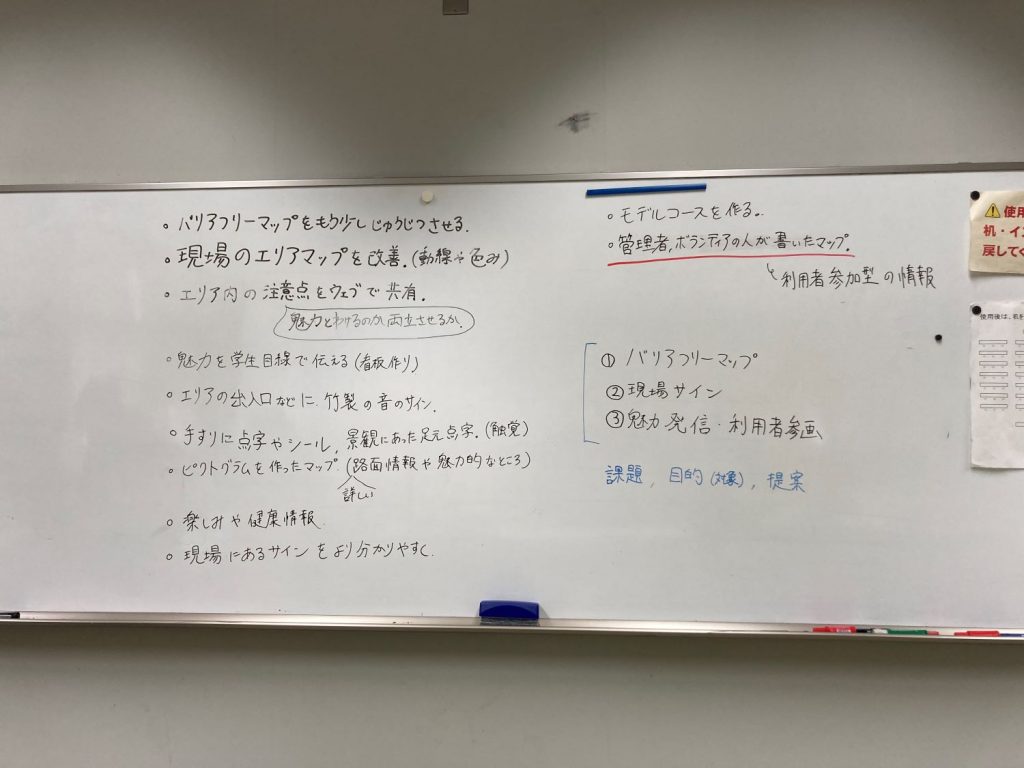 。バリアフリーマップをもう少しじゅうじつさせる.
。現場のエリアマップを改善.(動線や色み)
。エリア内の注意点をウェブで共有.
魅力とわけるのか両立させるか.
。魅力を学生目線で伝える(看板作り)
。エリアの出入口などに.竹製の音のサイン.
。手すりに点字やシール,景観にあった足元点字.(触覚)
。ピクトグラムを作ったマップ.(路面情報や魅力的なところ)
詳しい
。楽しみや健康情報.
。現場にあるサインをより分かりやすく.
。モデルコースを作る。
。管理者,ボランティアの人が書いたマップ.
利用者参加型の情報
①バリアフリーマップ
②現場サイン
③魅力発信・利用者参画
課題,目的(対象),提案
⚠使用
机・イ
戻してく
使用後は、机を